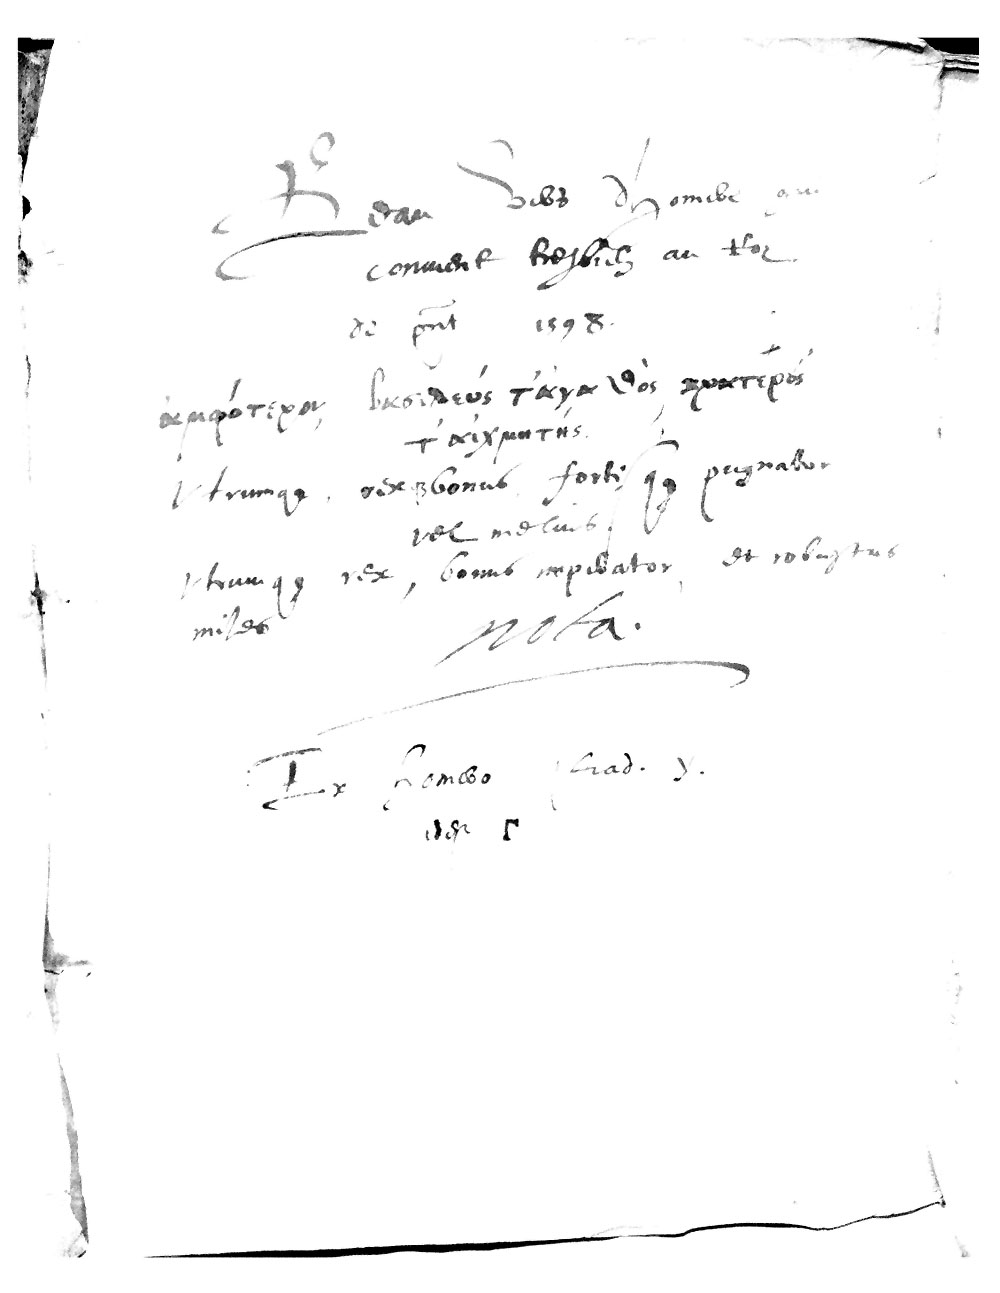 Beau vers d'homere qui
convient tresbien au Roy
de pnt 1598.
ἀμφότερον, βασιλεύς τ'ἀγαθὸς κρατερός
τ'αἰχμητής.
Vtrumqq, rex bonus fortisqq pugnator
vel melius.
Vtrumqq rex, bonus imperator, et robustus
miles nota.
Ex homero Iliad. γ.